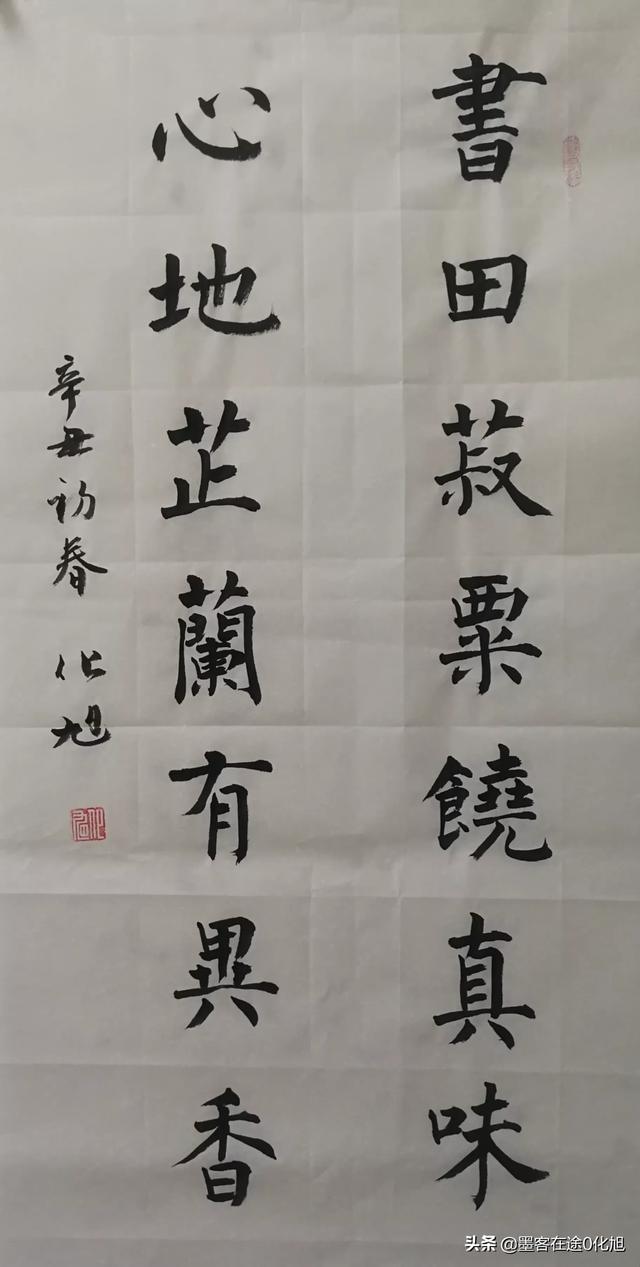 書田菽粟饒真味
心地芷蘭有異香
辛丑初春 化旭
头条 @墨客在途0化旭